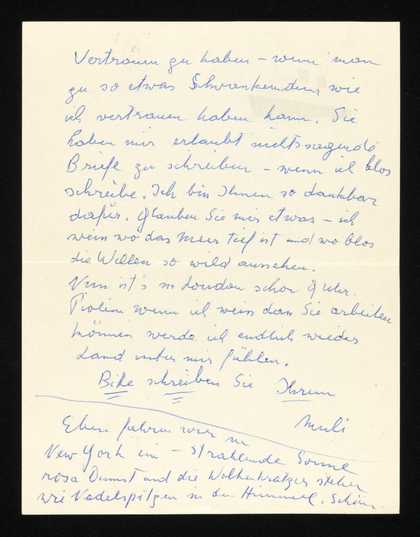 Vertrauen zu haben – wenn man
zu so etwas Schwankendem wie
ich vertrauen haben kann. Sie
haben mir erlaubt nichtssagende
Briefe zu schreiben – wenn ich blos
schreibe. Ich bin Ihnen so dankbar
dafür. Glauben Sie mir etwas – ich
weis wo das Meer tief ist und wo blos
die Wellen so wild aussehen.
Nun ist's in London schon 9 Uhr.
wenn ich weis das Sie arbeiten
können werde ich endlich wieder
Land unter mir fühlen.
Bitte schreiben Sie Ihrem
Muli
Eben fuhren wir in
New York ein – strahlende Sonne
rosa Dunst und die Wolkenkratzer stehen
wie Nadelspitzen in den Himmel. Schön